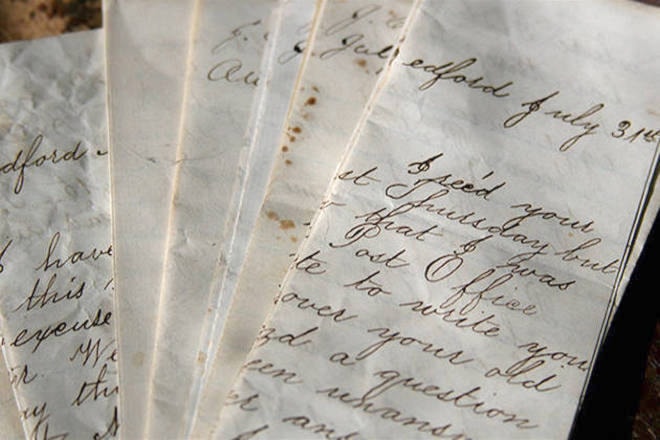 dford
I have
this
excuse
We
J.
Au
J. July
edford July 31st
I rec'd your
st Thursday but
that I was
Post Office
te to write you
over your old
d a question
een unans